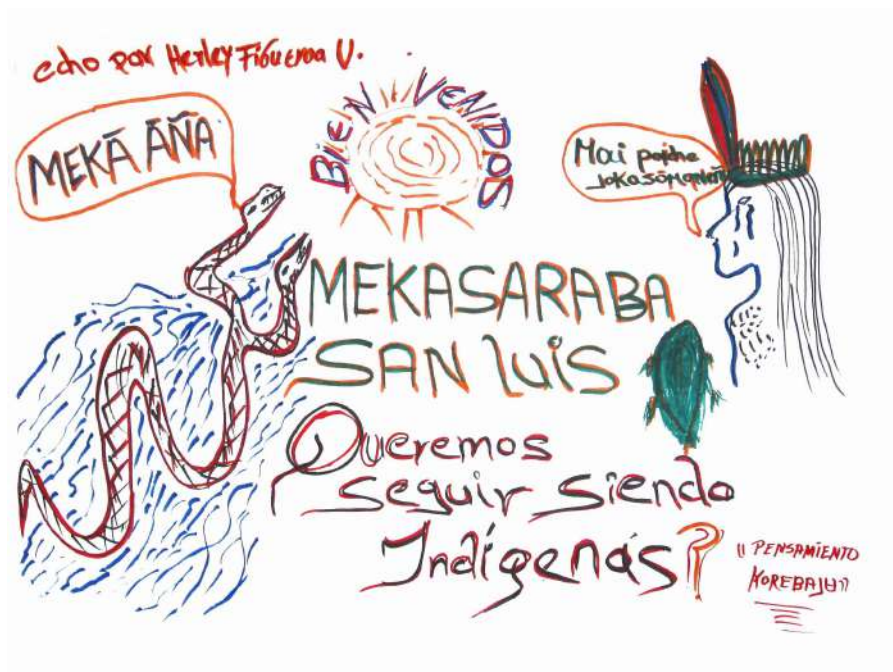 echo por Herley Figueroa V.
BIENVENIDOS
MEKĀ ĀÑA
Mai paiche
MEKASARABA
SAN LUIS
Queremos
seguir siendo
Indígenas?
"PENSAMIENTO
KOREBAJU"